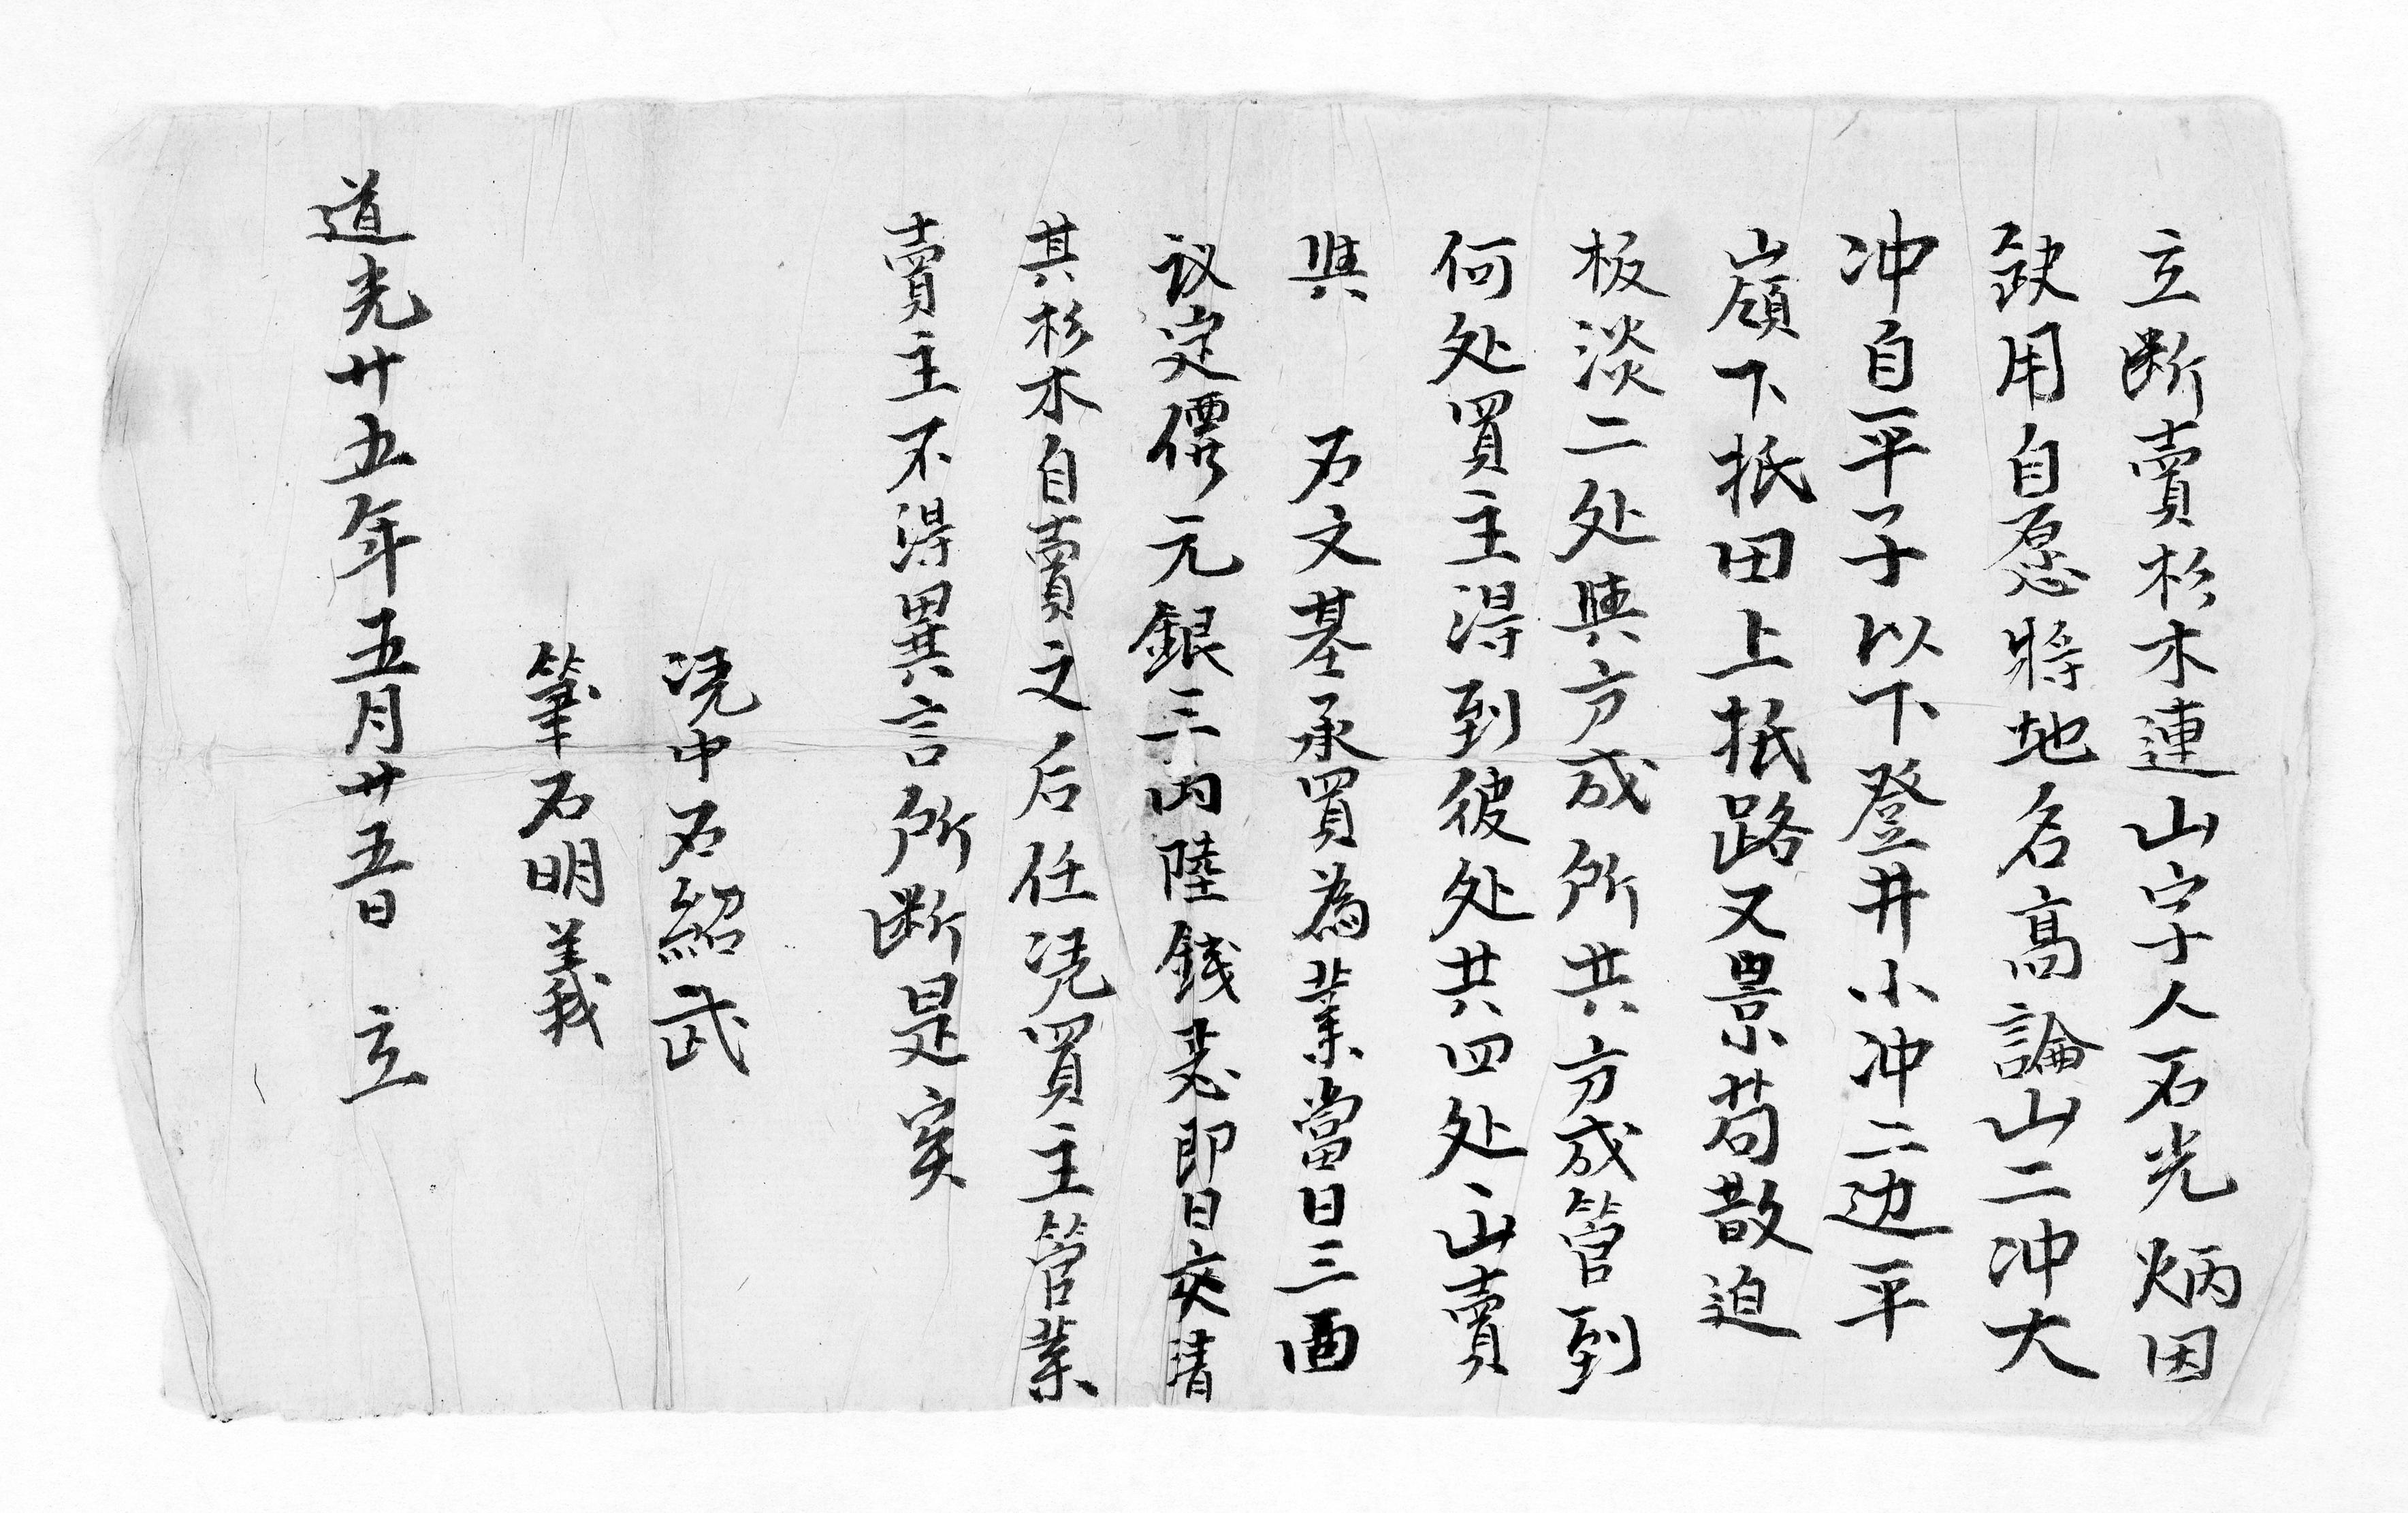 立断賣杉木連山字人石光炳因
缺用自愿將地名高論山二冲大
冲自平子以下登井小冲二边平
嶺下抵田上抵路又景苟散迫
板淡二处與方成所共方成管到
何处買主得到彼处共四处山賣
與 石文基承買為業當日三面
议定價元銀三两陸錢忒即日交清
其杉木自賣之后任凴買主管業
賣主不得異言所断是实
凴中石紹武
筆石明義
道光廿五年五月廿五日 立